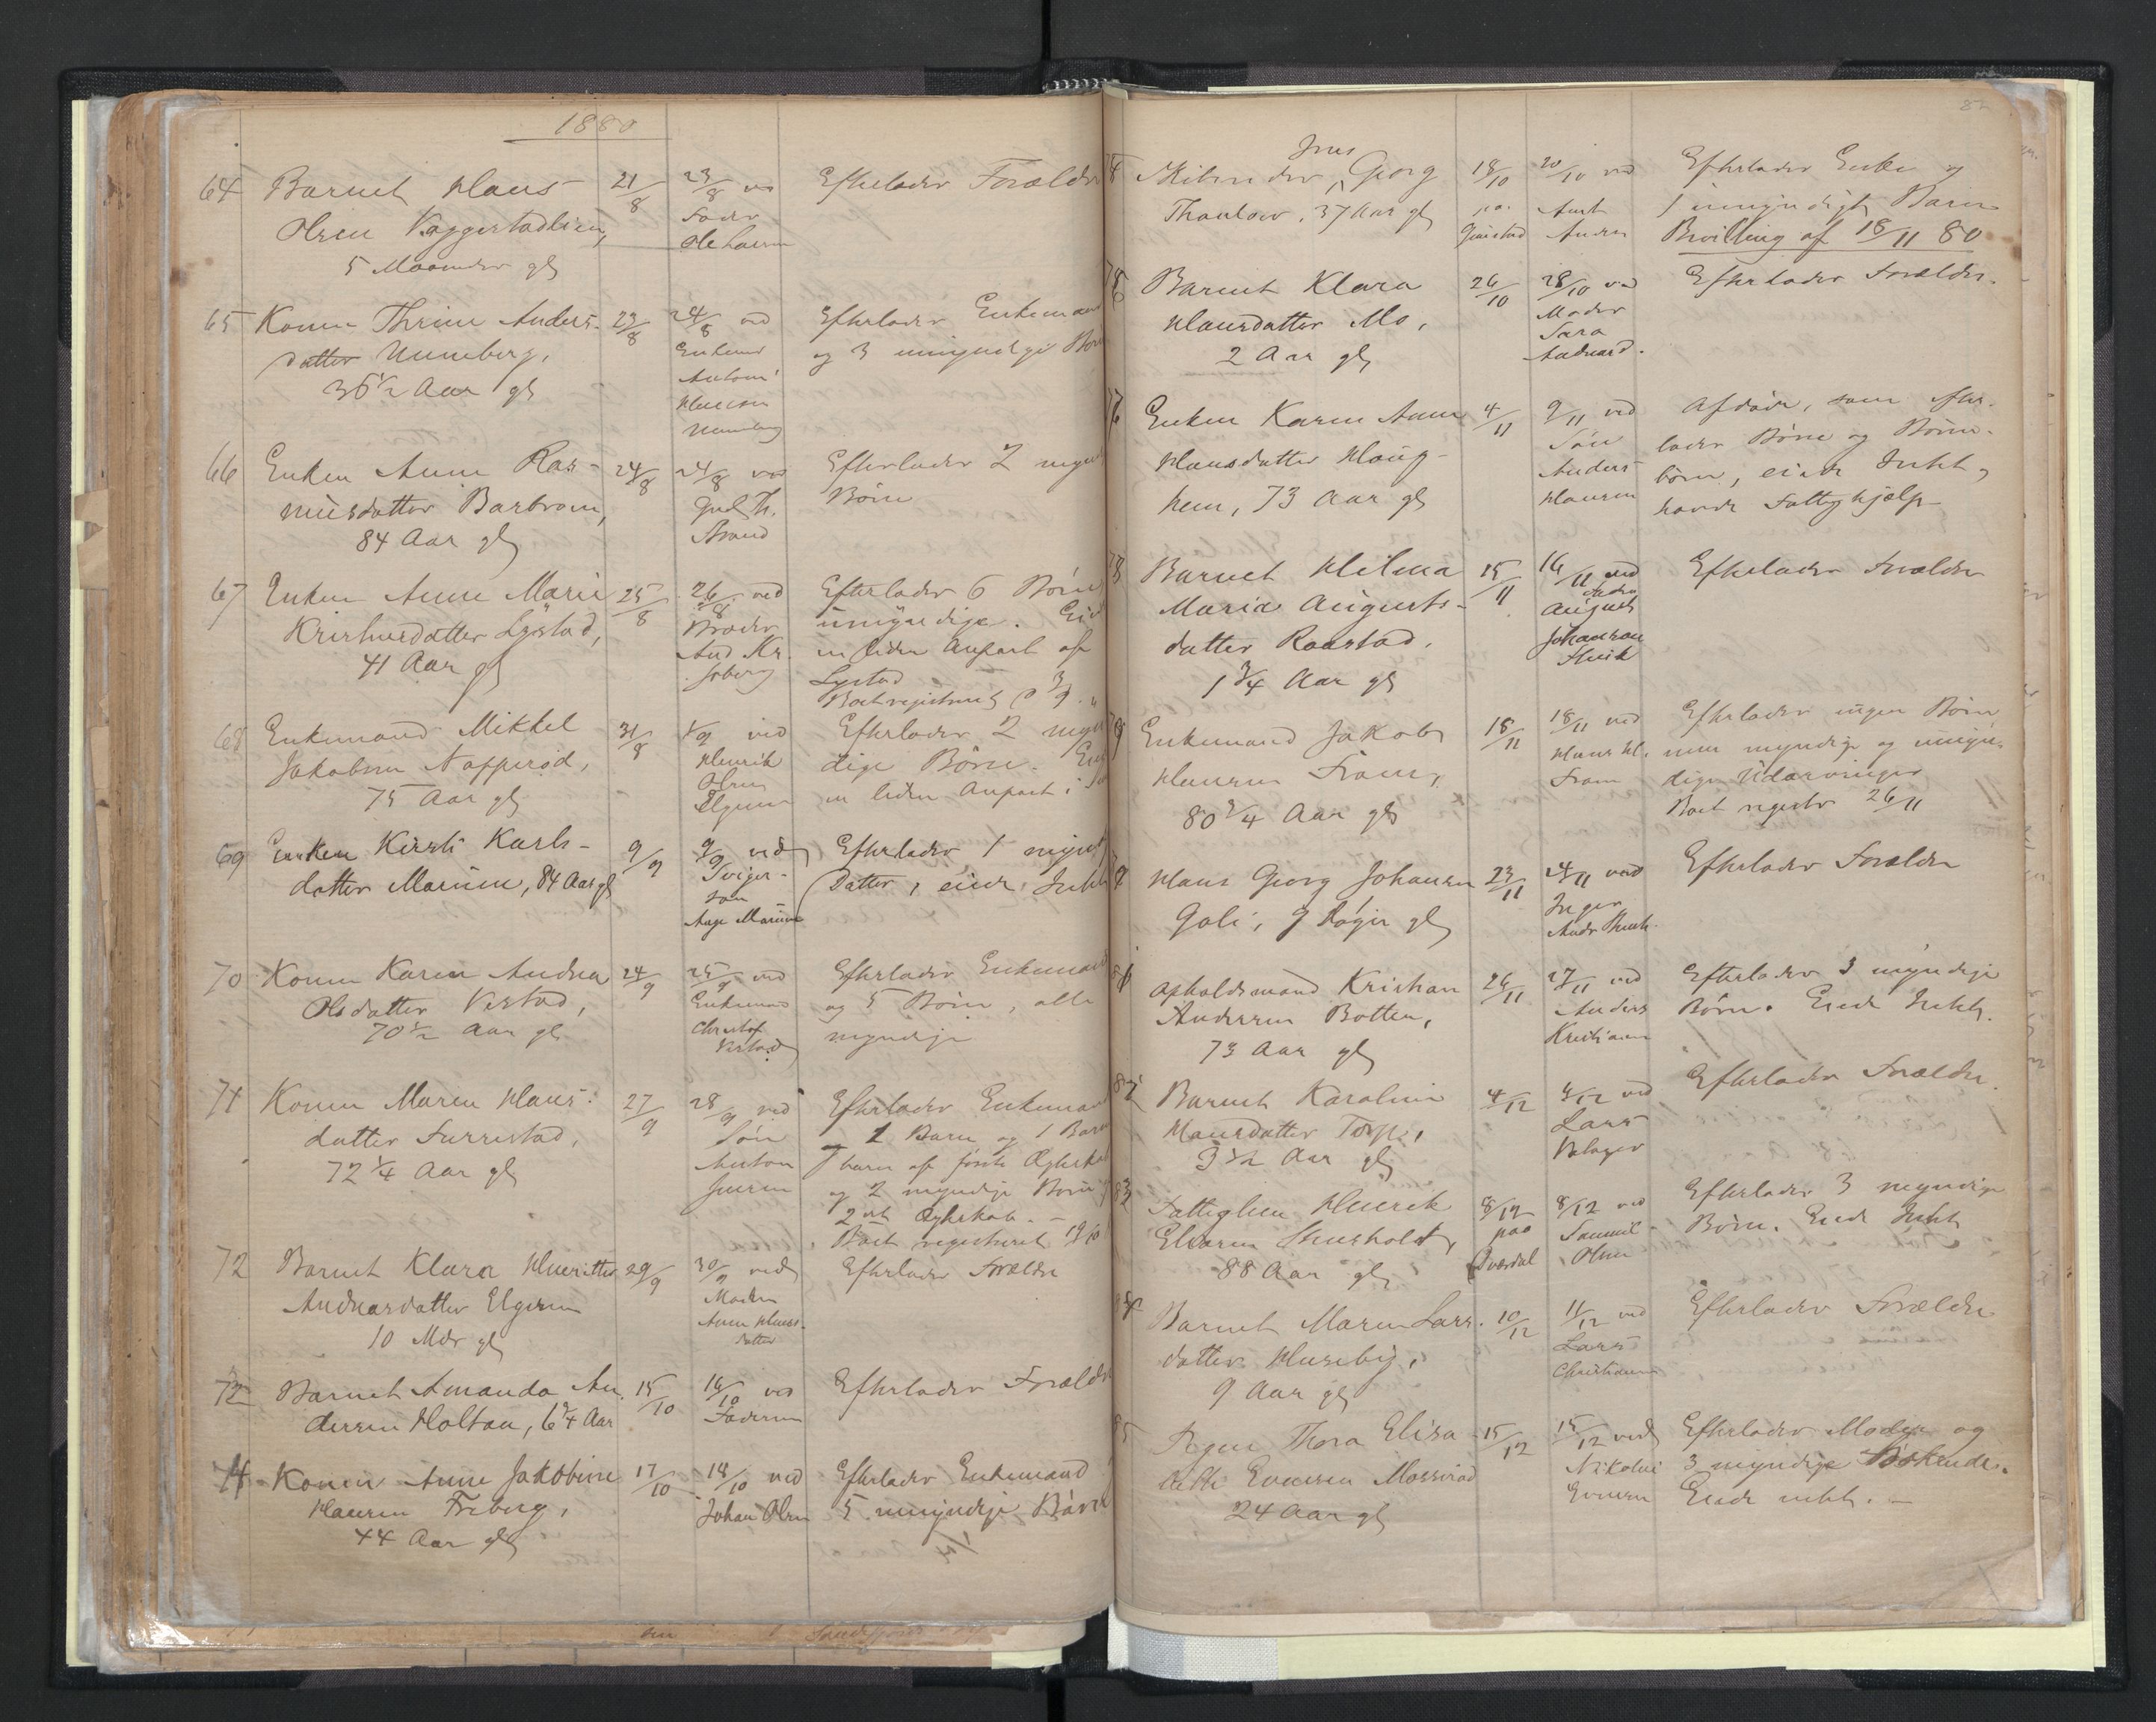 1880
64 Barnet Hans 21/8 23/8 ved Efterlader Forældre
Olsen Vaggestadlien, Fader
5 Maaneder gl Ole Larsen
65 Konen Thrine Anders- 23/8 24/8 ved Efterlader Enkemand
datter Unneberg, Enkemd og 3 umyndige Børn
36 1/2 Aar gl Antoni
Hansen
Unneberg
66 Enken Anne Ras- 24/8 24/8 ved Efterlader 2 mynd
musdatter Barbroen, Børn
84 Aar gl
67 Enken Anne Marie 25/8 26/8 ved Efterlader 6 Børn
Kristensdatter Lystad, Broder umyndige.
41 Aar gl And Kr. en liden Anpart af
Lystad
Boet registreret d 3/9
68 Enkemand Mikkel 31/8 1/9 ved Efterlader 2 myn
Jakobsen Napperød, Henrik dige Børn.
75 Aar gl Olsen en liden Anpart i
Elgesem
69 Enken Kirsti Karls- 9/9 9/9 ved Efterlader 1 mynd
datter Marum, 84 Aar gl Sviger- Datter, eiede Intet
søn
Aage Marum
70 Konen Karen Andrea 24/9 25/9 ved Efterlader Enkemand
Olsdatter Vestad, Enkemd og 5 Børn, alle
70 1/2 Aar gl Christof myndige
Vestad
71 Konen Maren Hans- 27/9 28/9 ved Efterlader Enkemand
datter Furrestad, Søn og 1 Barn og 1 Barne
72 1/4 Aar gl Anton barn af første Ægteskab
Jensen og 2 myndige Børn af
2det Ægteskab. -
Boet registreret 19/10
72 Barnet Klara Henritte 29/9 30/9 ved Efterlader Forældre
Andreasdatter Elgesem Moder
10 Mdr gl Anne Hans-
datter
73 Barnet Amanda An- 15/10 16/10 ved Efterlader Forældre
dersen Holtan, 6 3/4 Aar Faderen
74 Konen Anne Jakobine 17/10 18/10 ved Efterlader Enkemand
Hansen Freberg, Johan Olsen 5 umyndige Børn
44 Aar gl
82
Jens
Skibsreder, Georg 18/10 20/10 ved Efterlader Enke og
Thaulow, 37 Aar gl paa Amt 1 umyndigt Barn
Gimestad Bevilling af 18/11 80
Barnet Klara 26/10 28/10 ved Efterlader Forældre.
Hansdatter Mo, Moder
2 Aar gl Sara
Andreasd.
Enken Karen Anne 4/11 9/11 ved Afdøde, som efter-
Hansdatter Haug- Søn lader Børn og Børne-
hem, 73 Aar gl Anders børn, eiede Intet,
Hansen havde Fattighjælp
Barnet Helena 15/11 16/11 ved Efterlader Forældre
Maria Augusts- Fader August
datter Raastad, Johansen
1 3/4 Aar gl
79 Enkemand Jakob 18/11 18/11 ved Efterlader ingen Børn
Hansen Fram, Hans Hl. men myndige og umyn-
80 3/4 Aar gl Fram dige Udarvinger
Boet registr 26/11
Hans Georg Johansen 23/11 24/11 ved Efterlader Forældre
Goli, 9 Dage gl Inger
81 Opholdsmand Kristian 26/11 27/11 ved Efterlader 3 myndige
Andersen Botten, Anders Børn. Eiede Intet.
73 Aar gl Kristiansen
82 Barnet Karoline 4/12 4/12 ved Efterlader Forældre.
Hansdatter Torp, Lars
3 1/2 Aar gl
83 Fattiglem Henrik 8/12 8/12 ved Efterlader 3 myndige
Eliasen Stensholt, paa Samuel Børn. Eiede Intet
88 Aar gl Olsen
84 Barnet Maren Lars- 10/12 11/12 ved Efterlader Forældre
datter Huseby, Lars
9 Aar gl Christiansen
85 Pigen Thora Elisa- 15/12 15/12 ved Efterlader Moder og
beth Evensen Mosserød Nikolai 3 myndige Søskende.
24 Aar gl Evensen Eiede intet. -